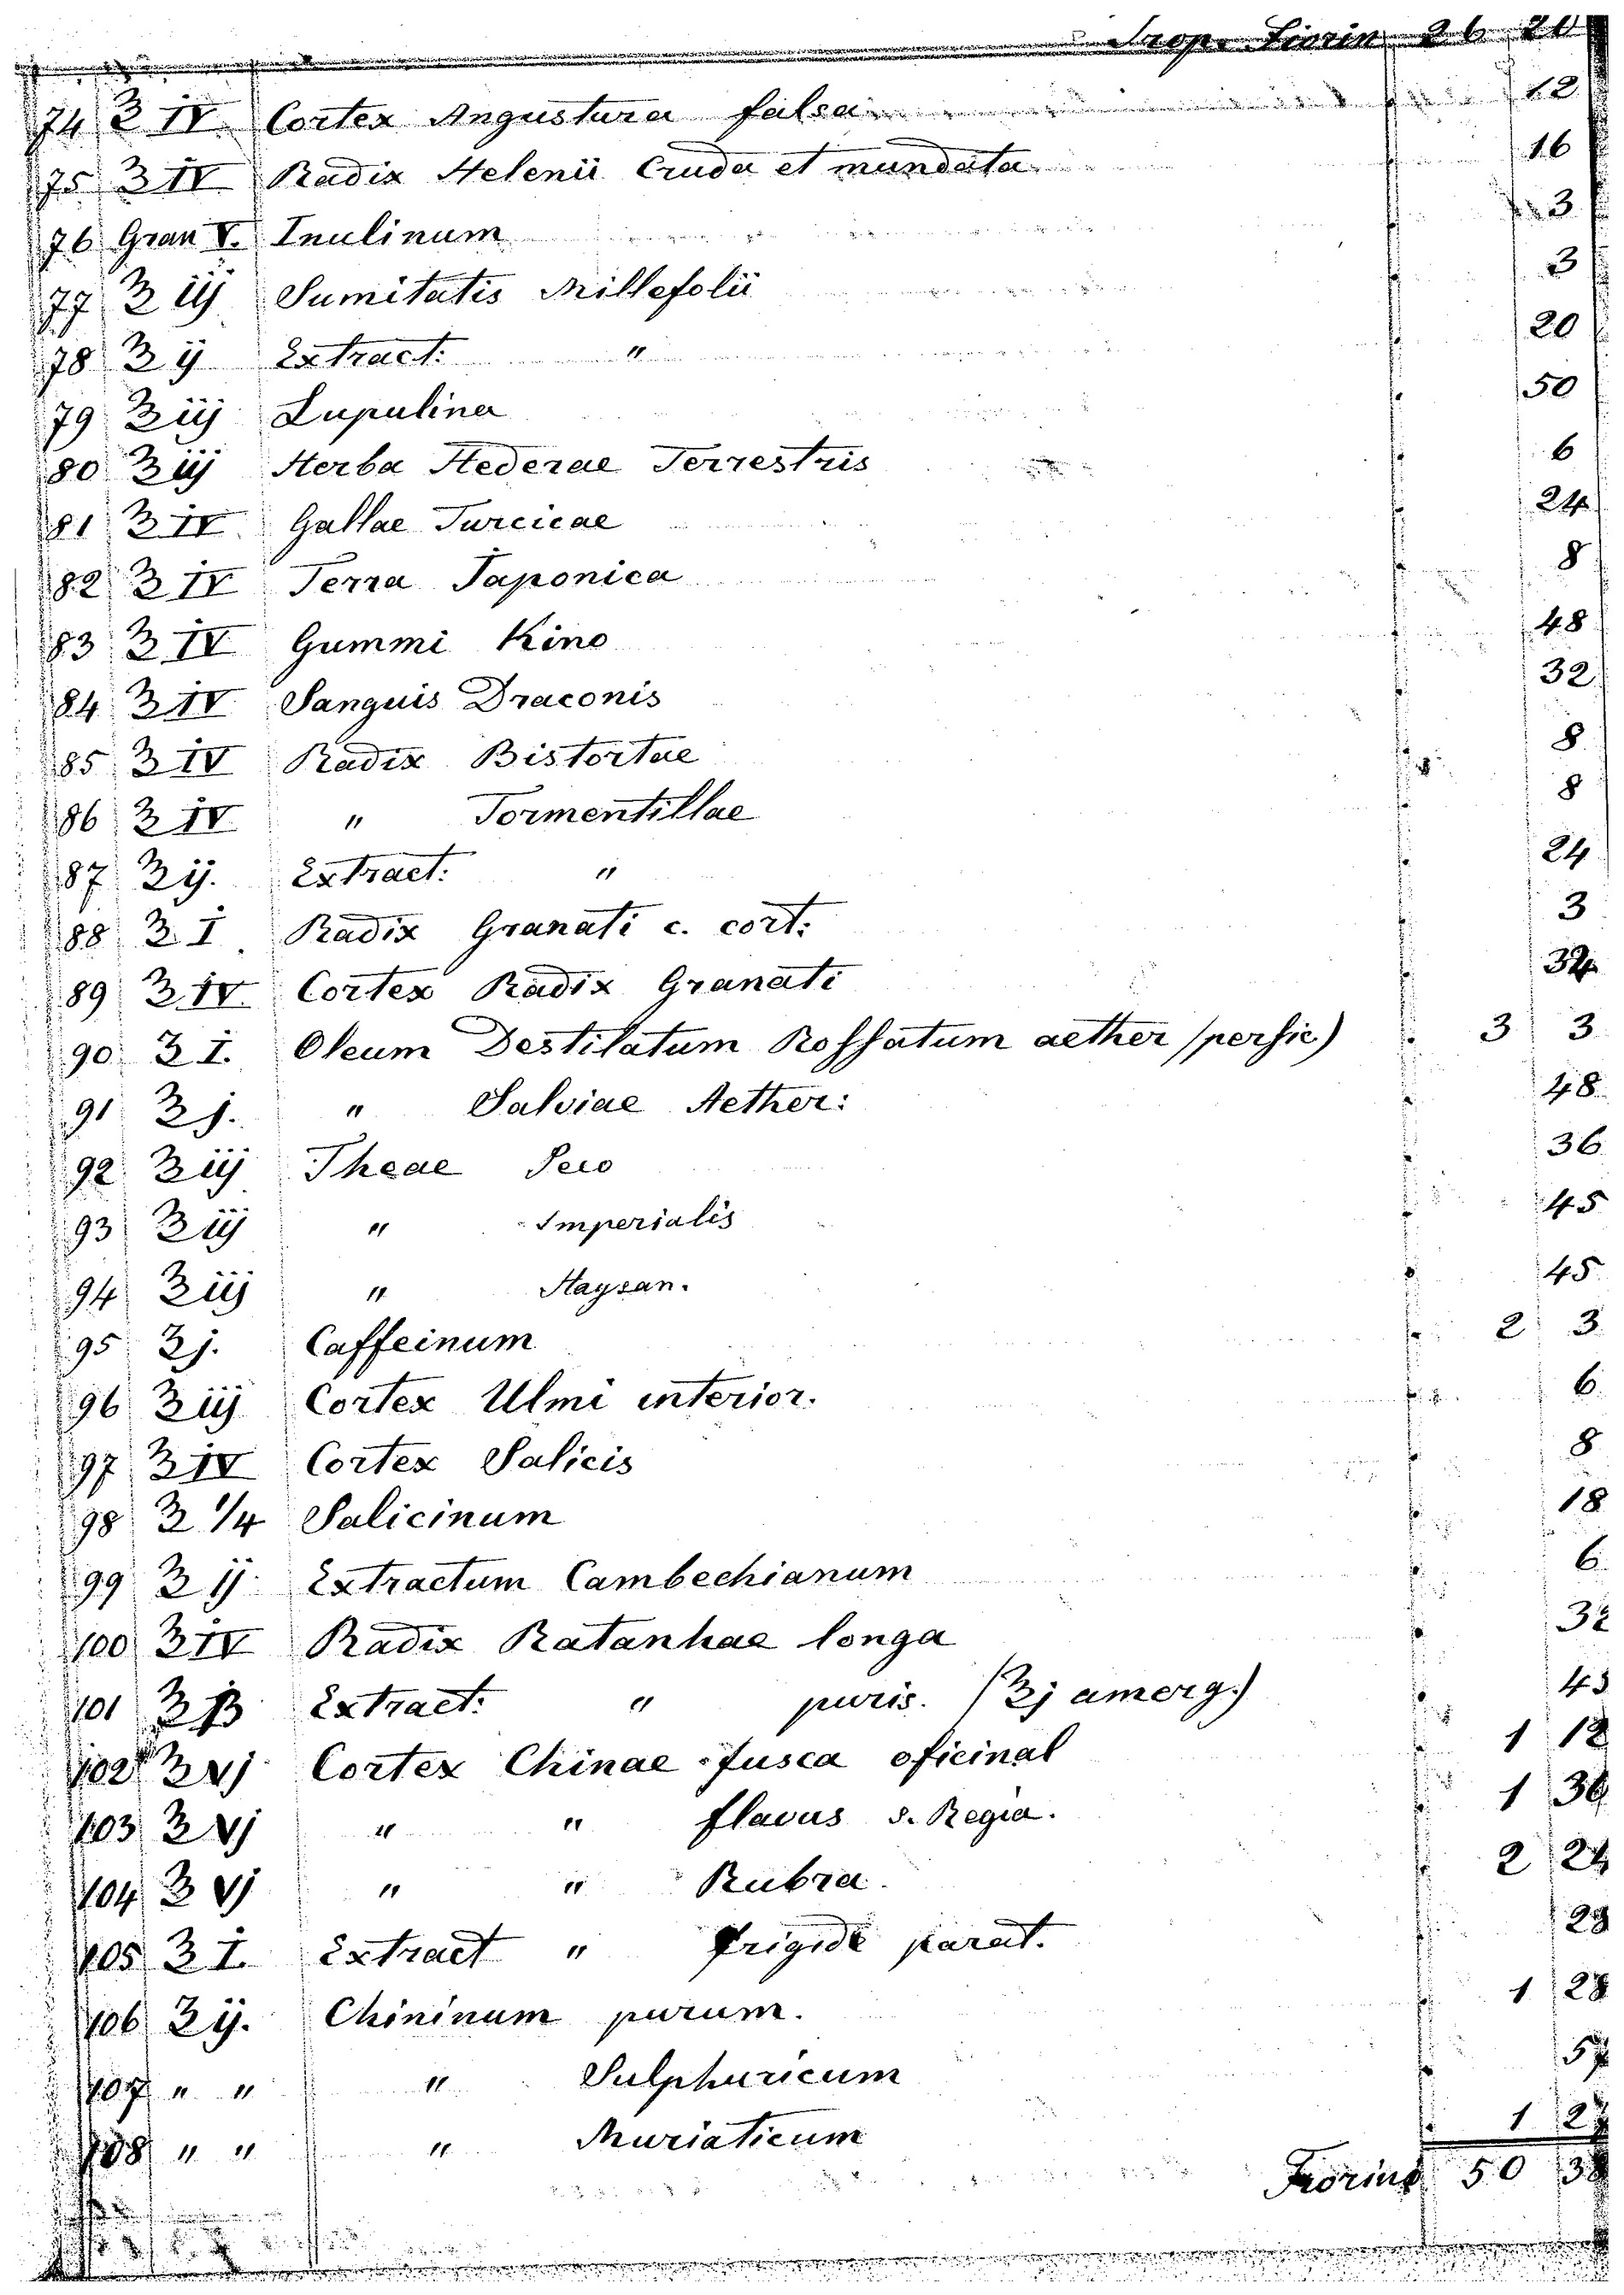 Florin 26 20
74 ℥ IV. Cortex Angustura falsa 12
75 ℥ IV Radix Helenii Cruda et mundata 16
76 Gran V. Inulinum 3
77 ℥ iij Sumitatis Millefolii 3
78 ℥ ij Extract: " 20
79 ℥ iij Lupulina 50
80 ℥ iij Herba Hederae Terrestris 6
81 ℥ IV Gallae Turcicae 24
82 ℥ IV Terra Japonica 8
83 ℥ IV Gummi Kino 48
84 ℥ IV Sanguis Draconis 32
85 ℥ IV Radix Bistortae 8
86 ℥ IV " Tormentillae 8
87 ℥ ij. Extract: " 24
88 ℥ I Radix Granati c. cort: 3
89 ℥ IV Cortex Radix Granati
90 ℥ I. Oleum Destilatum Rossatum aether (persic) 3 3
91 ℥ j. " Salviae Aether: 48
92 ℥ iij Theae Peco 36
93 ℥ iij " Imperialis 45
94 ℥ iij " Haysan. 45
95 ℥ j. Caffeinum 2 3
96 ℥ iij Cortex Ulmi interior. 6
97 ℥ IV Cortex Salicis 8
98 ℥ 1/4 Salicinum 18
99 ℥ ij Extractum Cambechianum 6
100 ℥ IV Radix Ratanhae longa 32
101 ℥ β Extract: " puris. (℥j amerg.) 45
102 ℥ vj Cortex Chinae fusca oficinal 1 12
103 ℥ vj " " flavus s. Regia. 1 36
104 ℥ vj " " Rubra. 2 24
105 ℥ I. Extract " frigide parat. 28
106 ℥ ij. Chininum purum. 1 28
107 " " " Sulphuricum 57
108 " " " Muriaticum 1 27
Florins 50 38